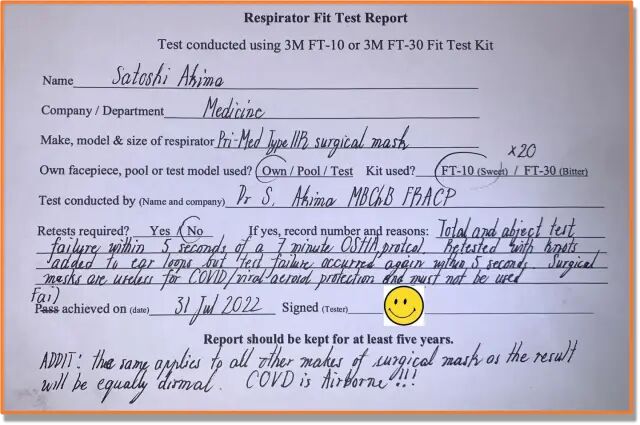 Respirator Fit Test Report
Test conducted using 3M FT-10 or 3M FT-30 Fit Test Kit
Name Satoshi Akima
Company / Department Medicine
Make, model & size of respirator Pri-Med Type IIR surgical mask
x20
Own facepiece, pool or test model used? Own / Pool / Test Kit used? FT-10 (Sweet) / FT-30 (Bitter)
Test conducted by (Name and company) Dr S. Akima MBChB FRACP
Retests required? Yes / No If yes, record number and reasons: Total and abject test
failure within 5 seconds of a 7 minute OSHA protcol. Retested with knots
added to ear loops but test failure occurred again within 5 seconds. Surgical
masks are useless for COVID/viral aerosol protection and must not be used
Fail
Pass achieved on (date) 31 Jul 2022 Signed (Tester)
Report should be kept for at least five years.
ADDIT: the same applies to all other makes of surgical mask as the result
will be equally dismal. COVD is Airborne!!!